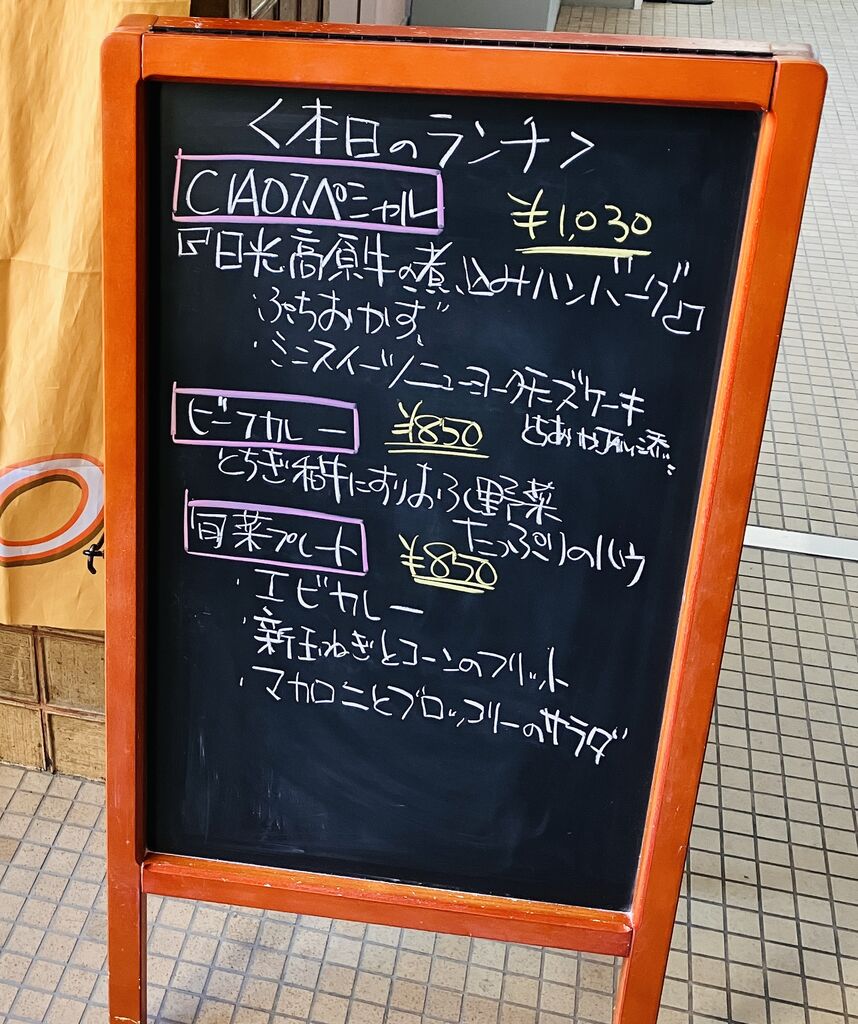 <本日のランチ>
CIAOスペシャル ¥1,030
『日光高原牛の煮込みハンバーグ』
・ぷちおかず
・ミニスイーツ/ニューヨークチーズケーキ
とちおとめ
ビーフカレー ¥850
とちぎ和牛にすりおろし野菜
たっぷりのルウ
旬菜プレート ¥850
・エビカレー
・新玉ねぎとコーンのフリット
・マカロニとブロッコリーのサラダ